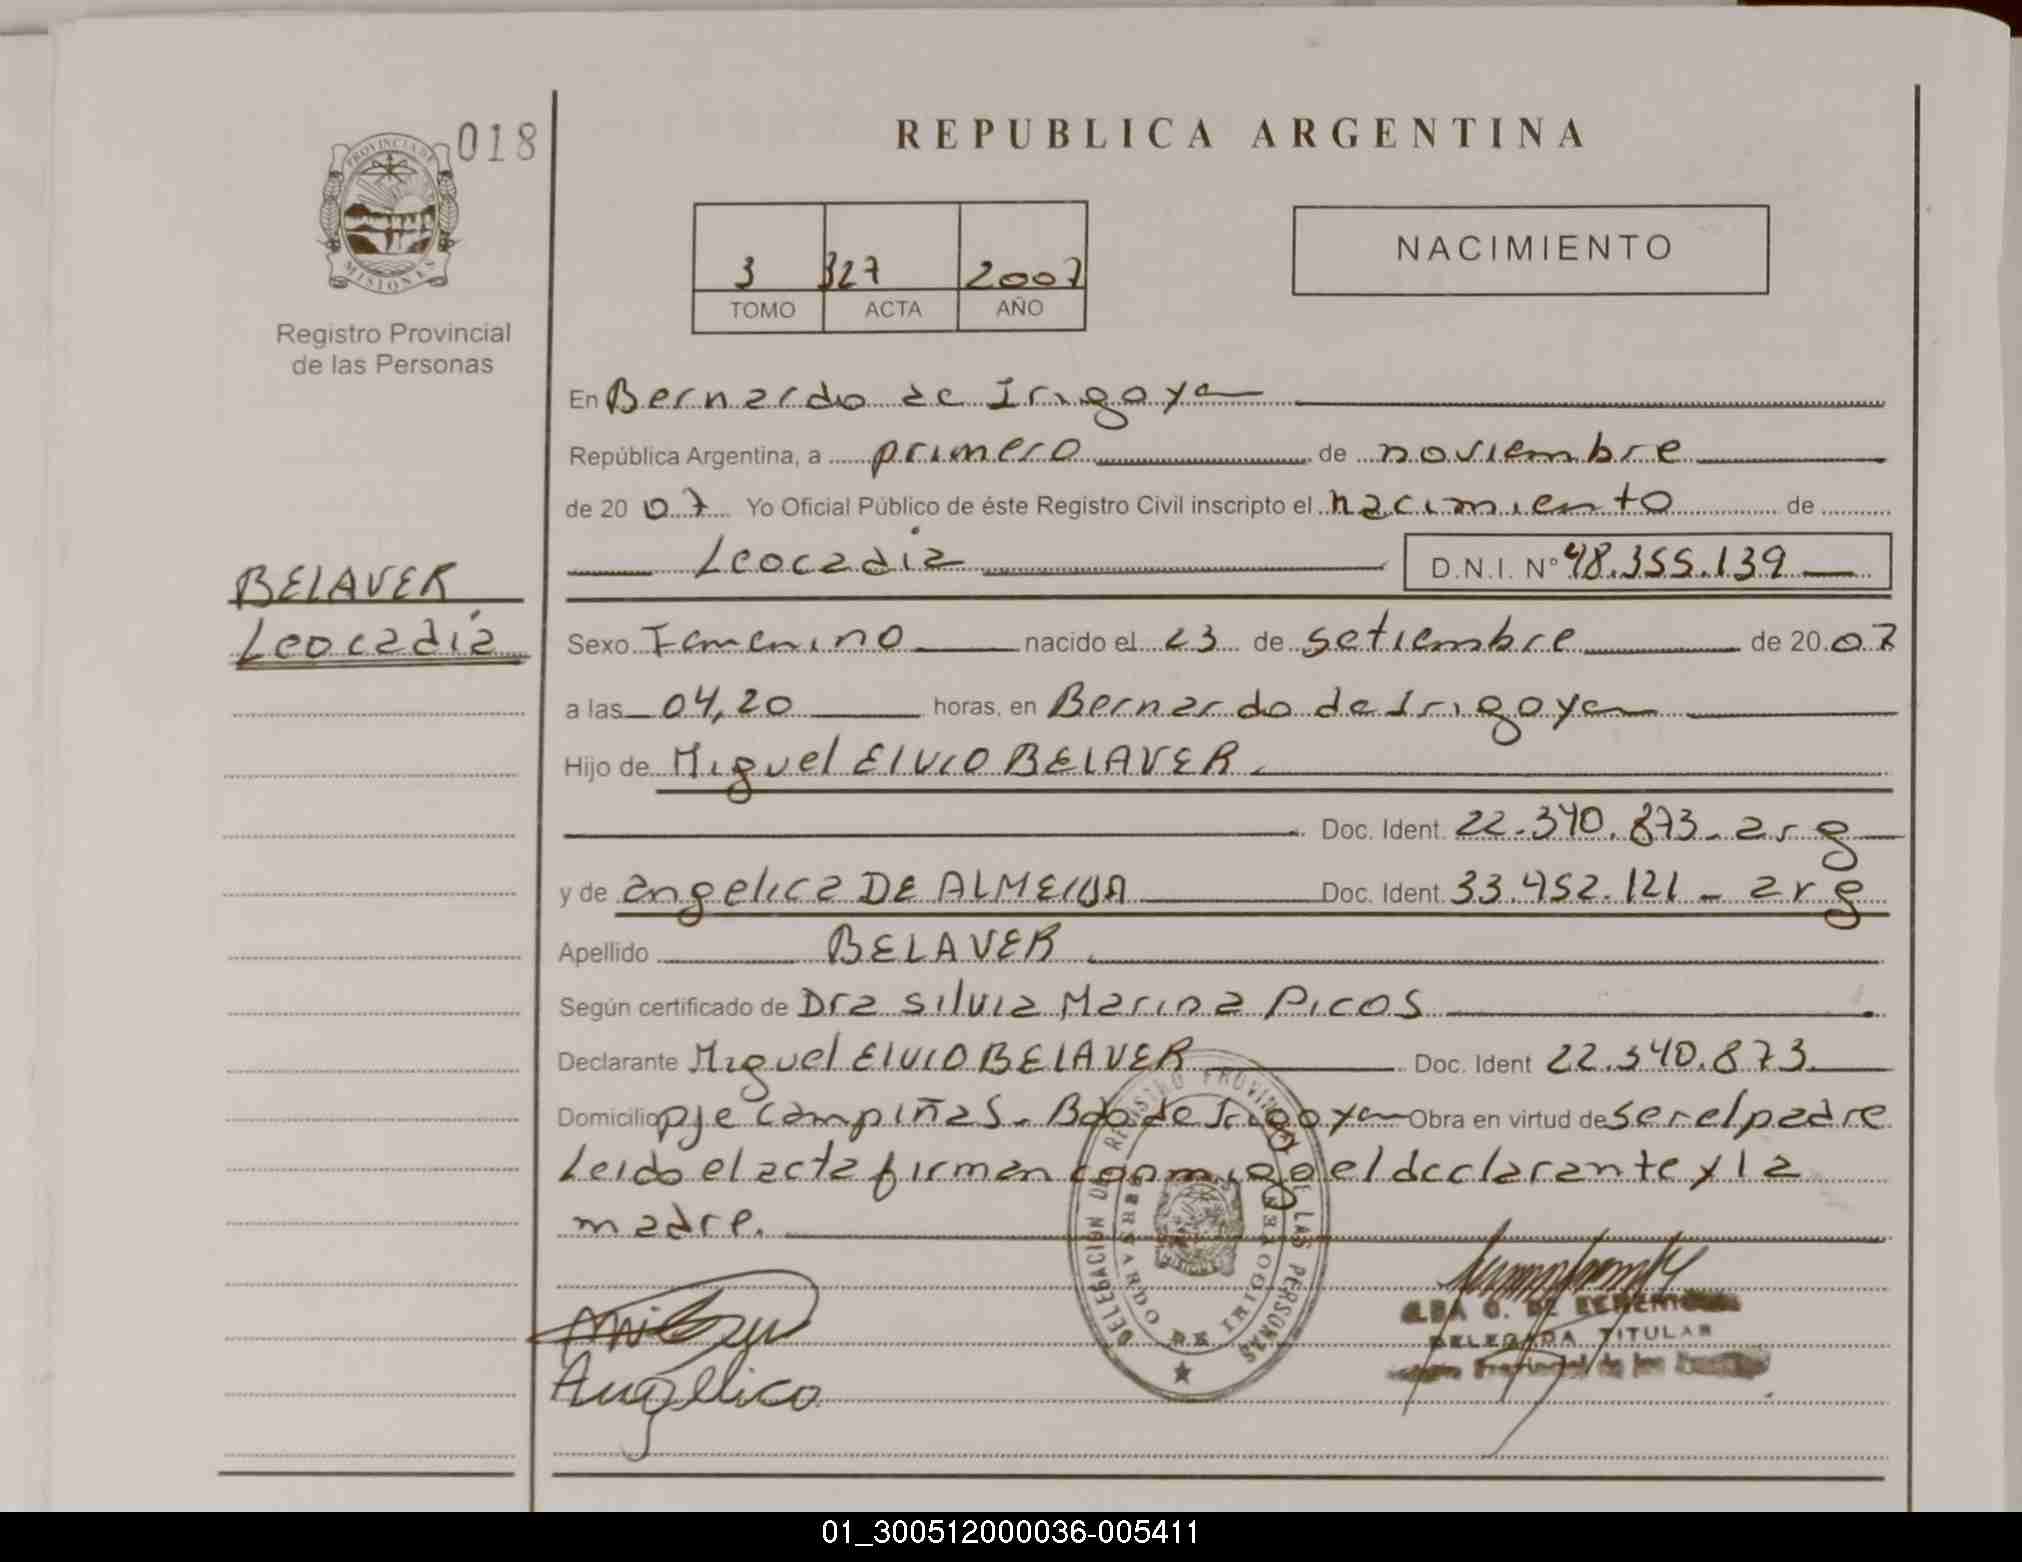 018
PROVINCIA DE
MISIONES
Registro Provincial
de las Personas
BELAVER
Leocadia
REPUBLICA ARGENTINA
3 327 2007
TOMO ACTA AÑO
NACIMIENTO
En Bernardo de Irigoyen
República Argentina, a primero de noviembre
de 20 07 Yo Oficial Público de éste Registro Civil inscripto el nacimiento de
Leocadia D.N.I. Nº 48.355.139
Sexo Femenino nacido el 23 de setiembre de 20 07
a las 04,20 horas, en Bernardo de Irigoyen
Hijo de Miguel Elvio BELAVER
Doc. Ident. 22.340.873 - arg
y de angelica DE ALMEIDA Doc. Ident. 33.452.121 - arg
Apellido BELAVER
Según certificado de Dra Silvia Marina Picos
Declarante Miguel Elvio BELAVER Doc. Ident 22.340.873
Domicilio pje campiñas - Bdo de Irigoyen Obra en virtud de ser el padre
Leido el acta firman conmigo el declarante y la
madre.
DELEGACION DEL REGISTRO PROVINCIAL DE LAS PERSONAS
BERNARDO DE IRIGOYEN
Angelica
ALBA G. DE
DELEGADA TITULAR
Provincial de las
01_300512000036-005411